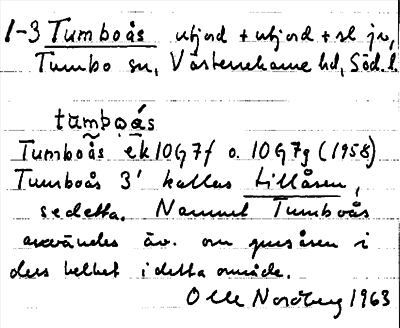 1-3 Tumboås utjord + utjord + sl jv,
Tumbo sn, Västerrekarne hd, Söd. l.
tumboås
Tumboås ek 10G7f o. 10G7g (1958)
Tumboås 3' kallas Lillåsen,
se detta. Namnet Tumboås
användes äv. om grusåsen i
dess helhet i detta område.
Olle Nordberg 1963